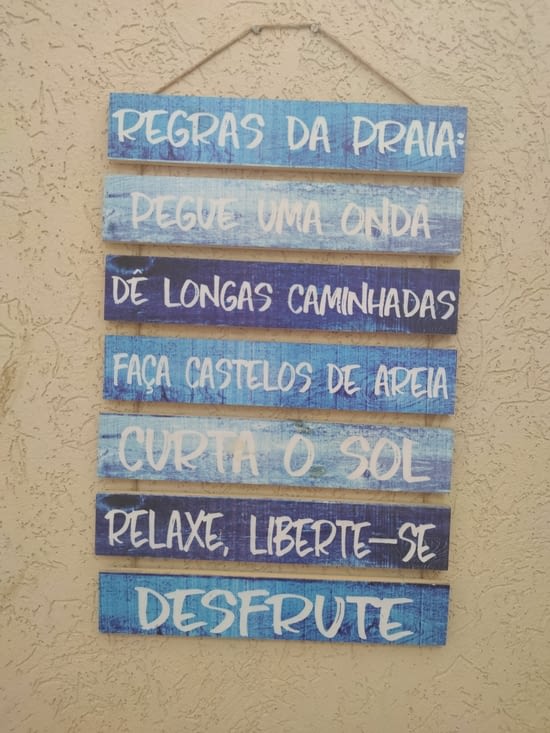 REGRAS DA PRAIA:
PEGUE UMA ONDA
DÊ LONGAS CAMINHADAS
FAÇA CASTELOS DE AREIA
CURTA O SOL
RELAXE, LIBERTE-SE
DESFRUTE